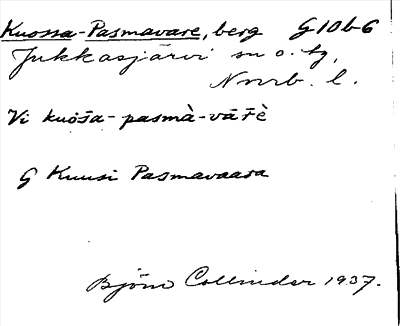 Kuossa-Pasmavare, berg G10b6
Jukkasjärvi sn o. tg,
Nnrb. l.
Vi kuossa- pasmà-vārè
G Kuusi Pasmavaara
Björn Collinder 1937.